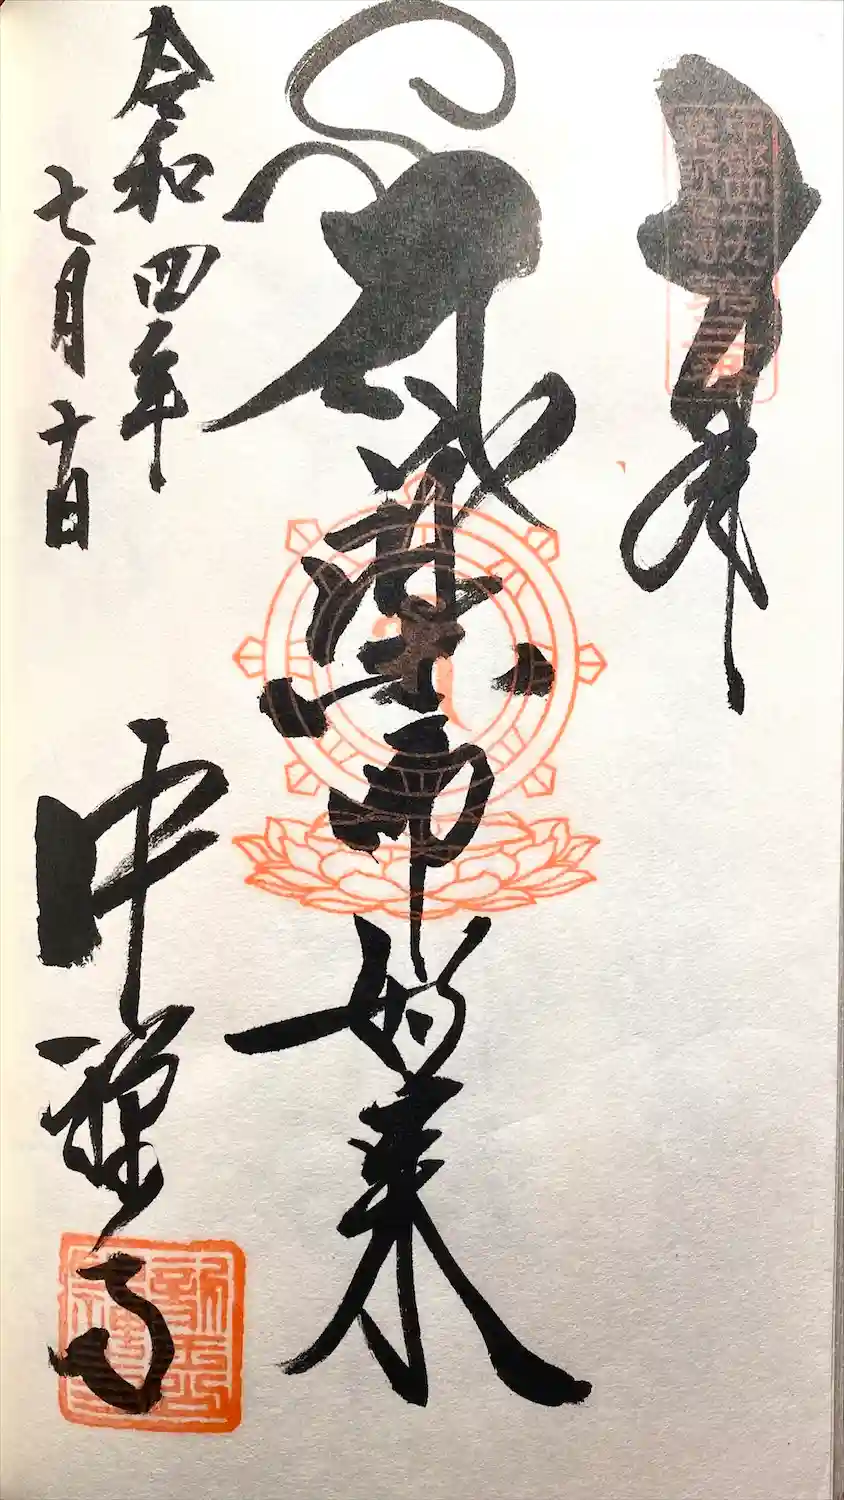 奉拝
薬師如来
令和四年
七月十日
中禅寺